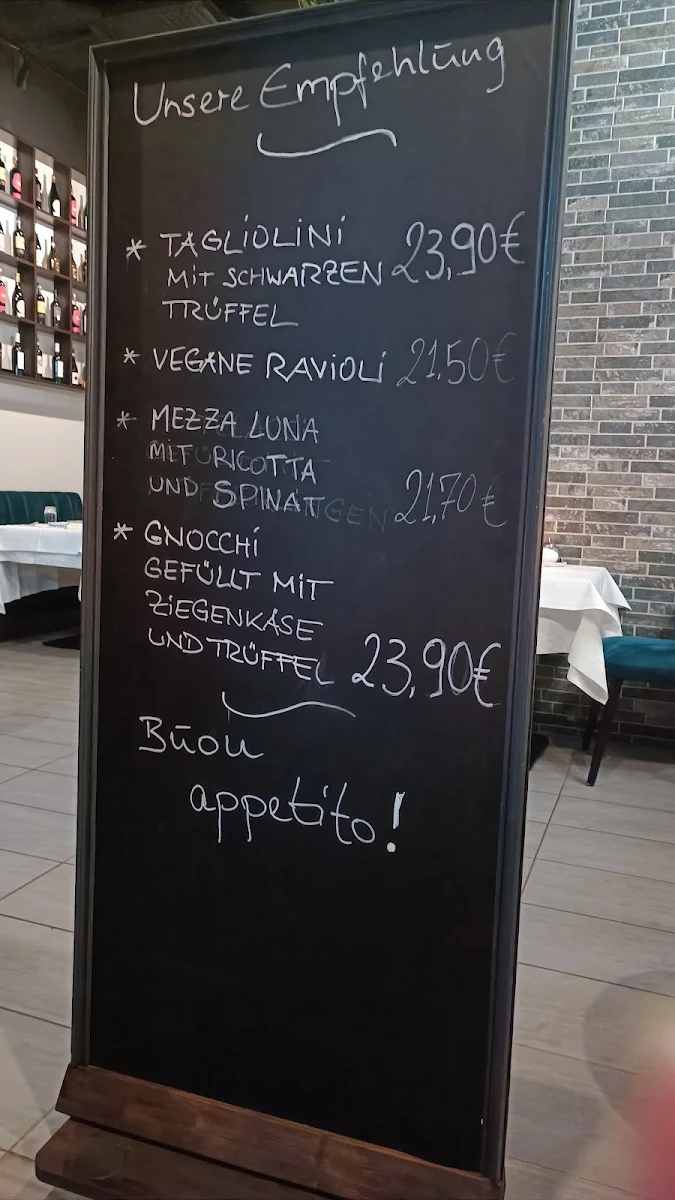 Unsere Empfehlung
* TAGLIOLINI
MIT SCHWARZEN 23,90€
TRÜFFEL
* VEGANE RAVIOLI 21,50€
* MEZZA LUNA
MIT RICOTTA
UND SPINAT 21,70€
* GNOCCHI
GEFÜLLT MIT
ZIEGENKÄSE
UND TRÜFFEL 23,90€
Buon
appetito!